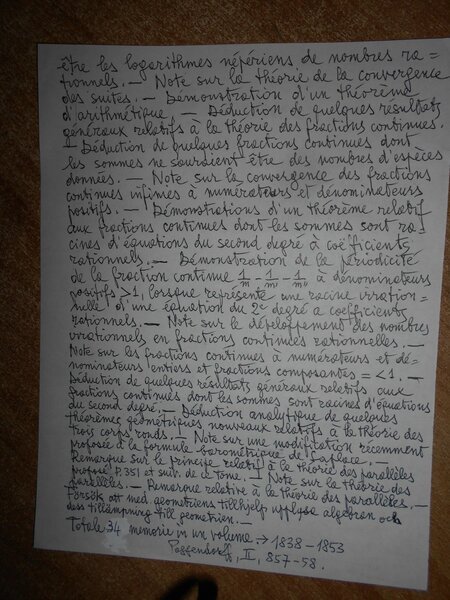 être les logarithmes népériens de nombres ra=
tionnels. — Note sur la théorie de la convergence
des suites. — Démonstration d'un théorème
d'arithmétique — Déduction de quelques résultats
généraux relatifs à la théorie des fractions continues.
— Déduction de quelques fractions continues dont
les sommes ne sauraient être des nombres d'espèces
données. — Note sur la convergence des fractions
continues infinies à numérateurs et dénominateurs
positifs. — Démonstrations d'un théorème relatif
aux fractions continues dont les sommes sont ra=
cines d'équations du second degré à coëfficients
rationnels. — Démonstration de la périodicité
de la fraction continue 1/m - 1/m' - 1/m" à dénominateurs
positifs >1, lorsque représente une racine irration=
nelle d'une équation du 2e degré a coefficients
rationnels. — Note sur le développement des nombres
irrationnels en fractions continues rationnelles. —
Note sur les fractions continues à numérateurs et dé=
nominateurs entiers et fractions composantes = <1. —
Déduction de quelques résultats généraux relatifs aux
fractions continues dont les sommes sont racines d'équations
du second degré. — Déduction analytique de quelques
théorèmes géometriques nouveaux relatifs à la théorie des
trois corps ronds. — Note sur une modification récemment
proposée à la formule barométrique de Laplace. —
Remarque sur le principe relatif à la théorie des parallèles
proposé P. 351 et suiv. de ce tome. — Note sur la théorie des
parallèles. — Remarque relative à la théorie des parallèles. —
Försök att med geometriens tillhjelp upplösa algebran och
dess tillämpning till geometrien. —
Totale 34 memorie in un volume → 1838 – 1853
Poggendorff, II, 857-58.